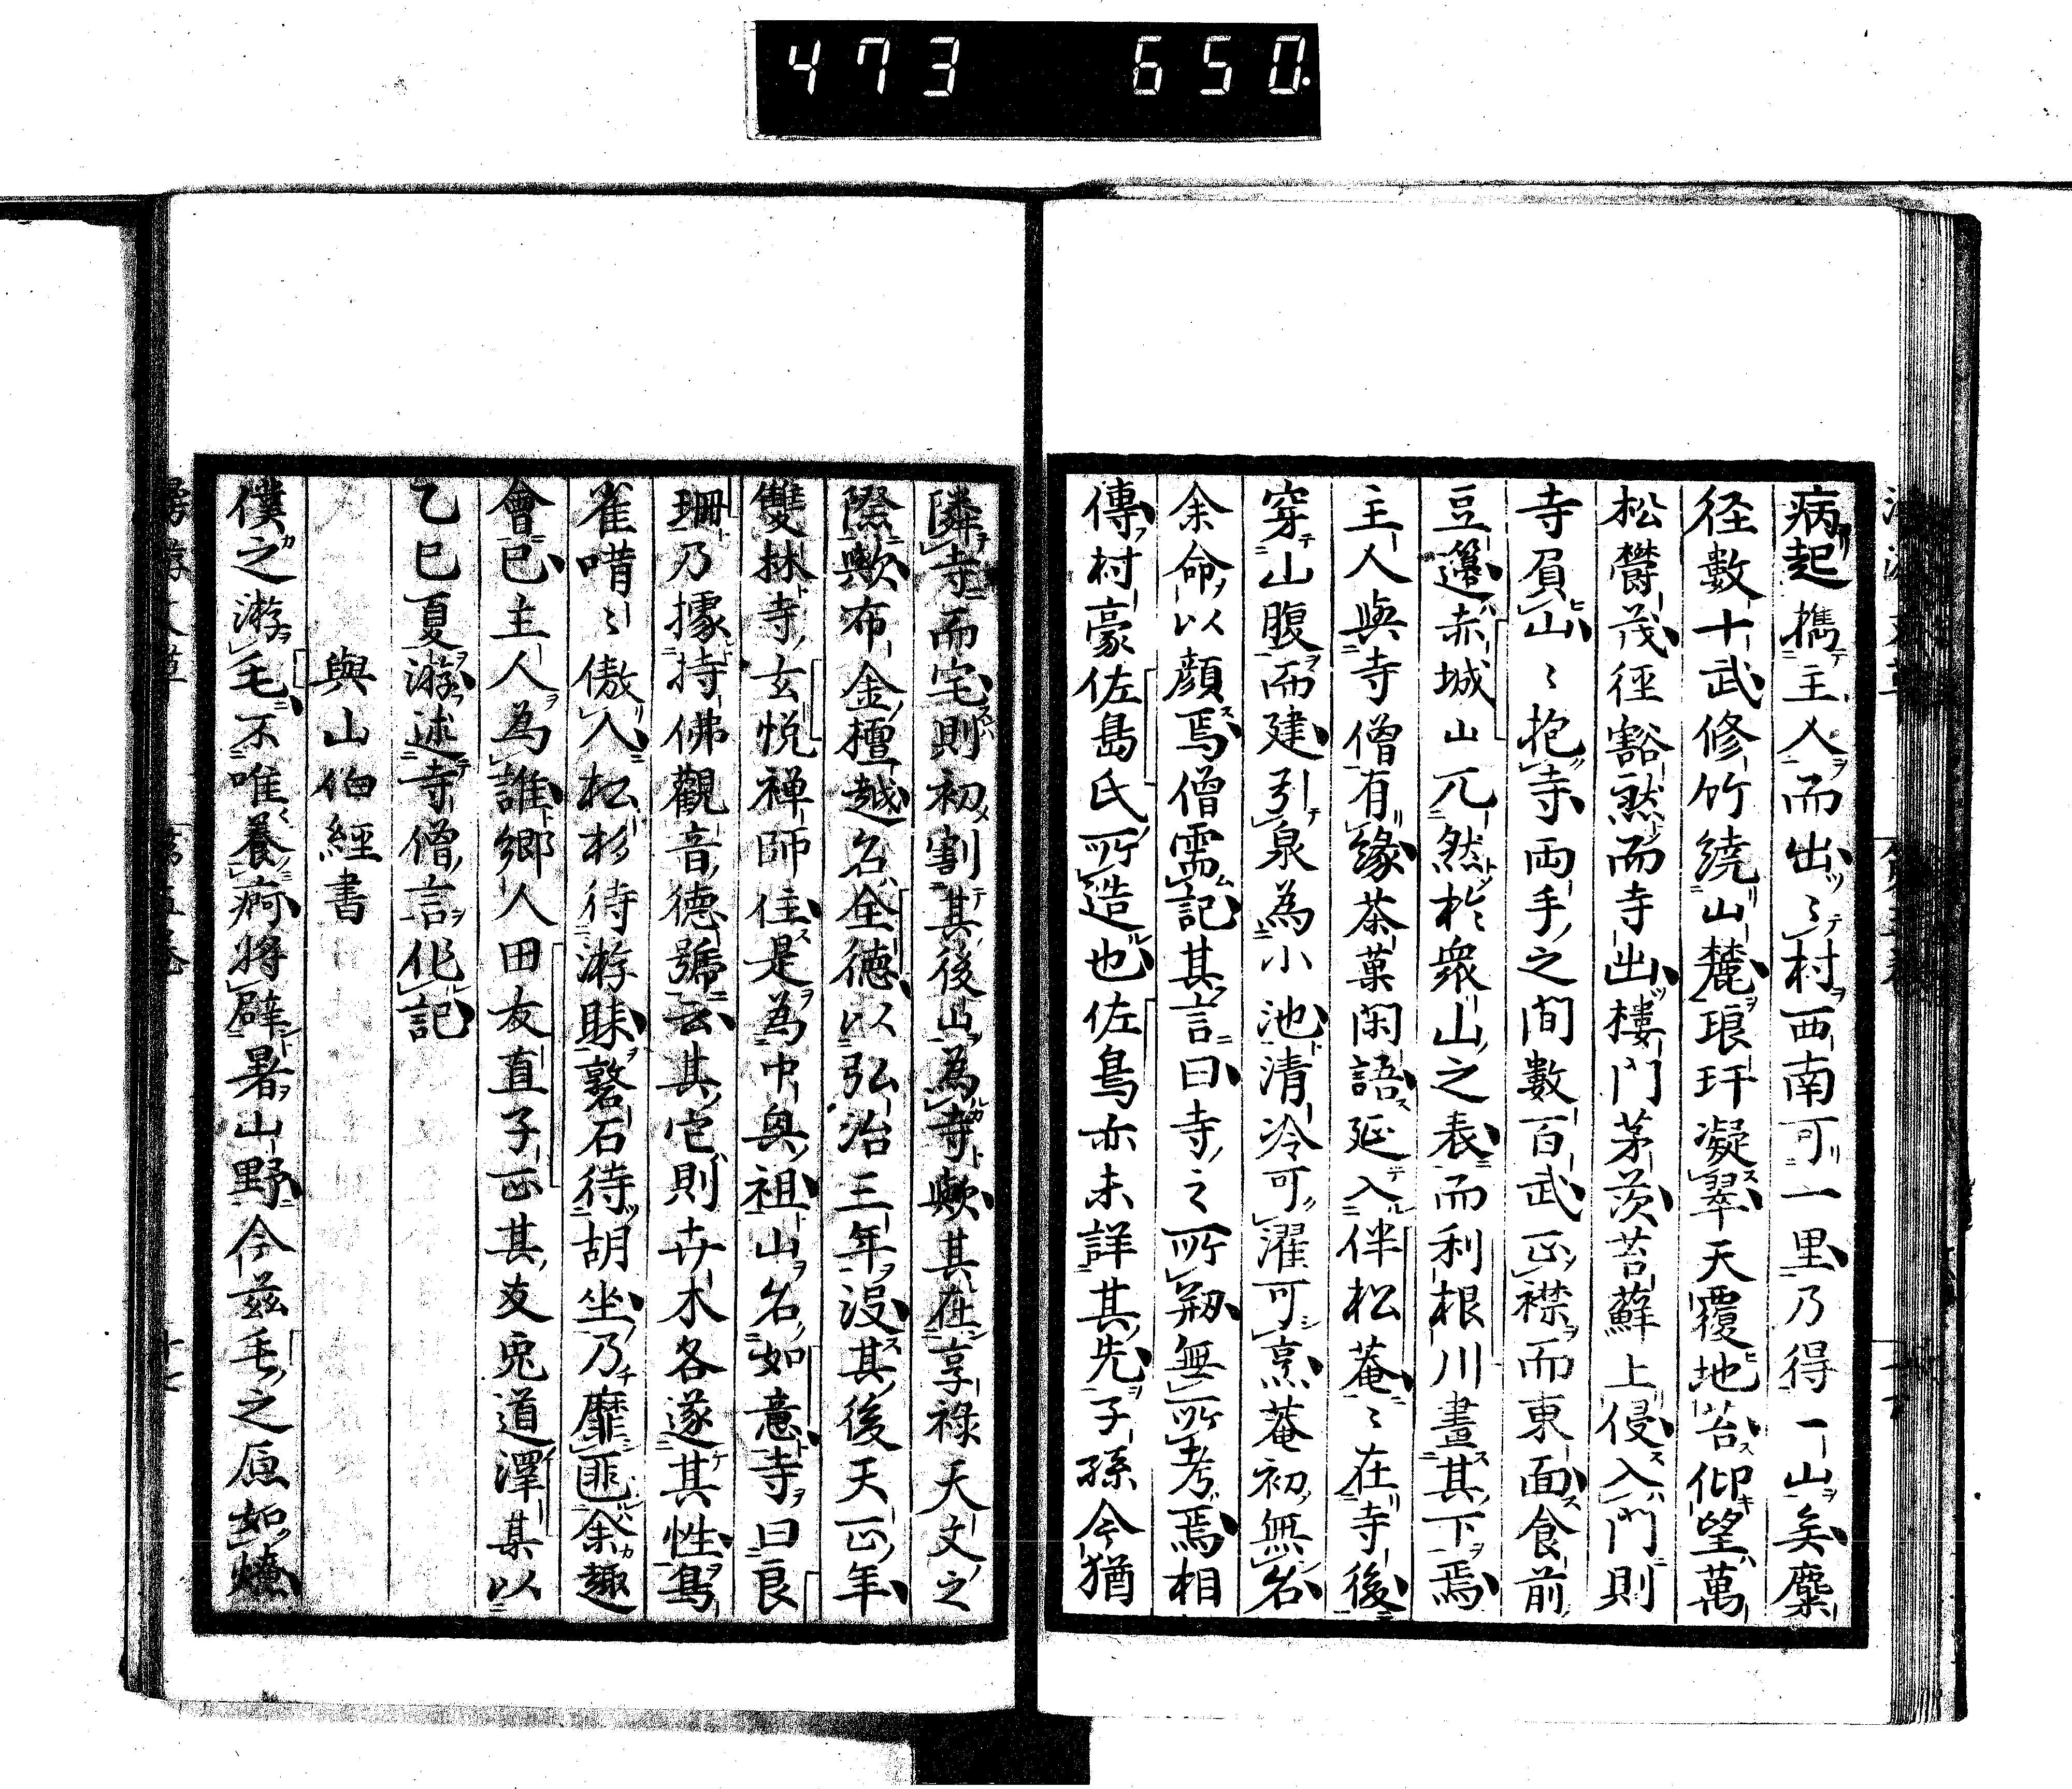 473 650.
病起携主人而出〻村西南可一里乃得一山矣麋
径數十武修竹繞山麓琅玕凝翠天覆地苔仰望萬
松欝茂徑豁然而寺出樓門茅茨苔蘚上侵入門則
寺負山〻抱寺両手之間數百武正襟而東面食前
豆邊赤城山山兀然於衆山之表而利根川畫其下焉
主人與寺僧有緣茶菓閑語延入伴松菴〻在寺後
穿山腹而建引泉為小池清冷可濯可烹菴初無名
余命以顔焉僧需記其言曰寺之所剏無所考焉相
傳村豪佐島氏所造也佐島亦未詳其先子孫今猶
隣寺而宅則初割其後山為寺歟其在享祿天文之
際歟布金檀越名全德以弘治三年没其後天正年
雙林寺玄悦禅師住是為中奥祖山名如意寺曰良
珊乃據持佛觀音德號云其它則卉木各遂其性鳥
雀唶〻傲入松杉待游眛磬石待胡坐乃靡匪余趣
會已主人為誰鄉人田友直子正其友兎道澤某以
乙巳夏游述寺僧言作記
與山伯經書
僕之游毛不唯養痾將辟暑山野今茲毛之區如燎